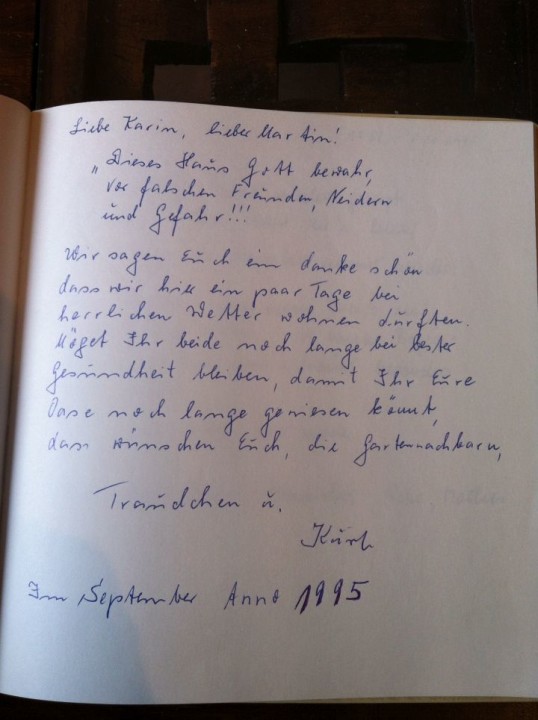 Liebe Karin, lieber Martin!
„Dieses Haus Gott bewahr,
vor falschen Freunden, Neidern
und Gefahr!!!
Wir sagen Euch ein danke schön
dass wir hier ein paar Tage bei
herrlichen Wetter wohnen durften.
Möget Ihr beide noch lange bei bester
Gesundheit bleiben, damit Ihr Eure
Oase noch lange geniesen könnt,
dass wünschen Euch, die Gartennachbarn,
Traudchen u.
Kurt
Im September Anno 1995